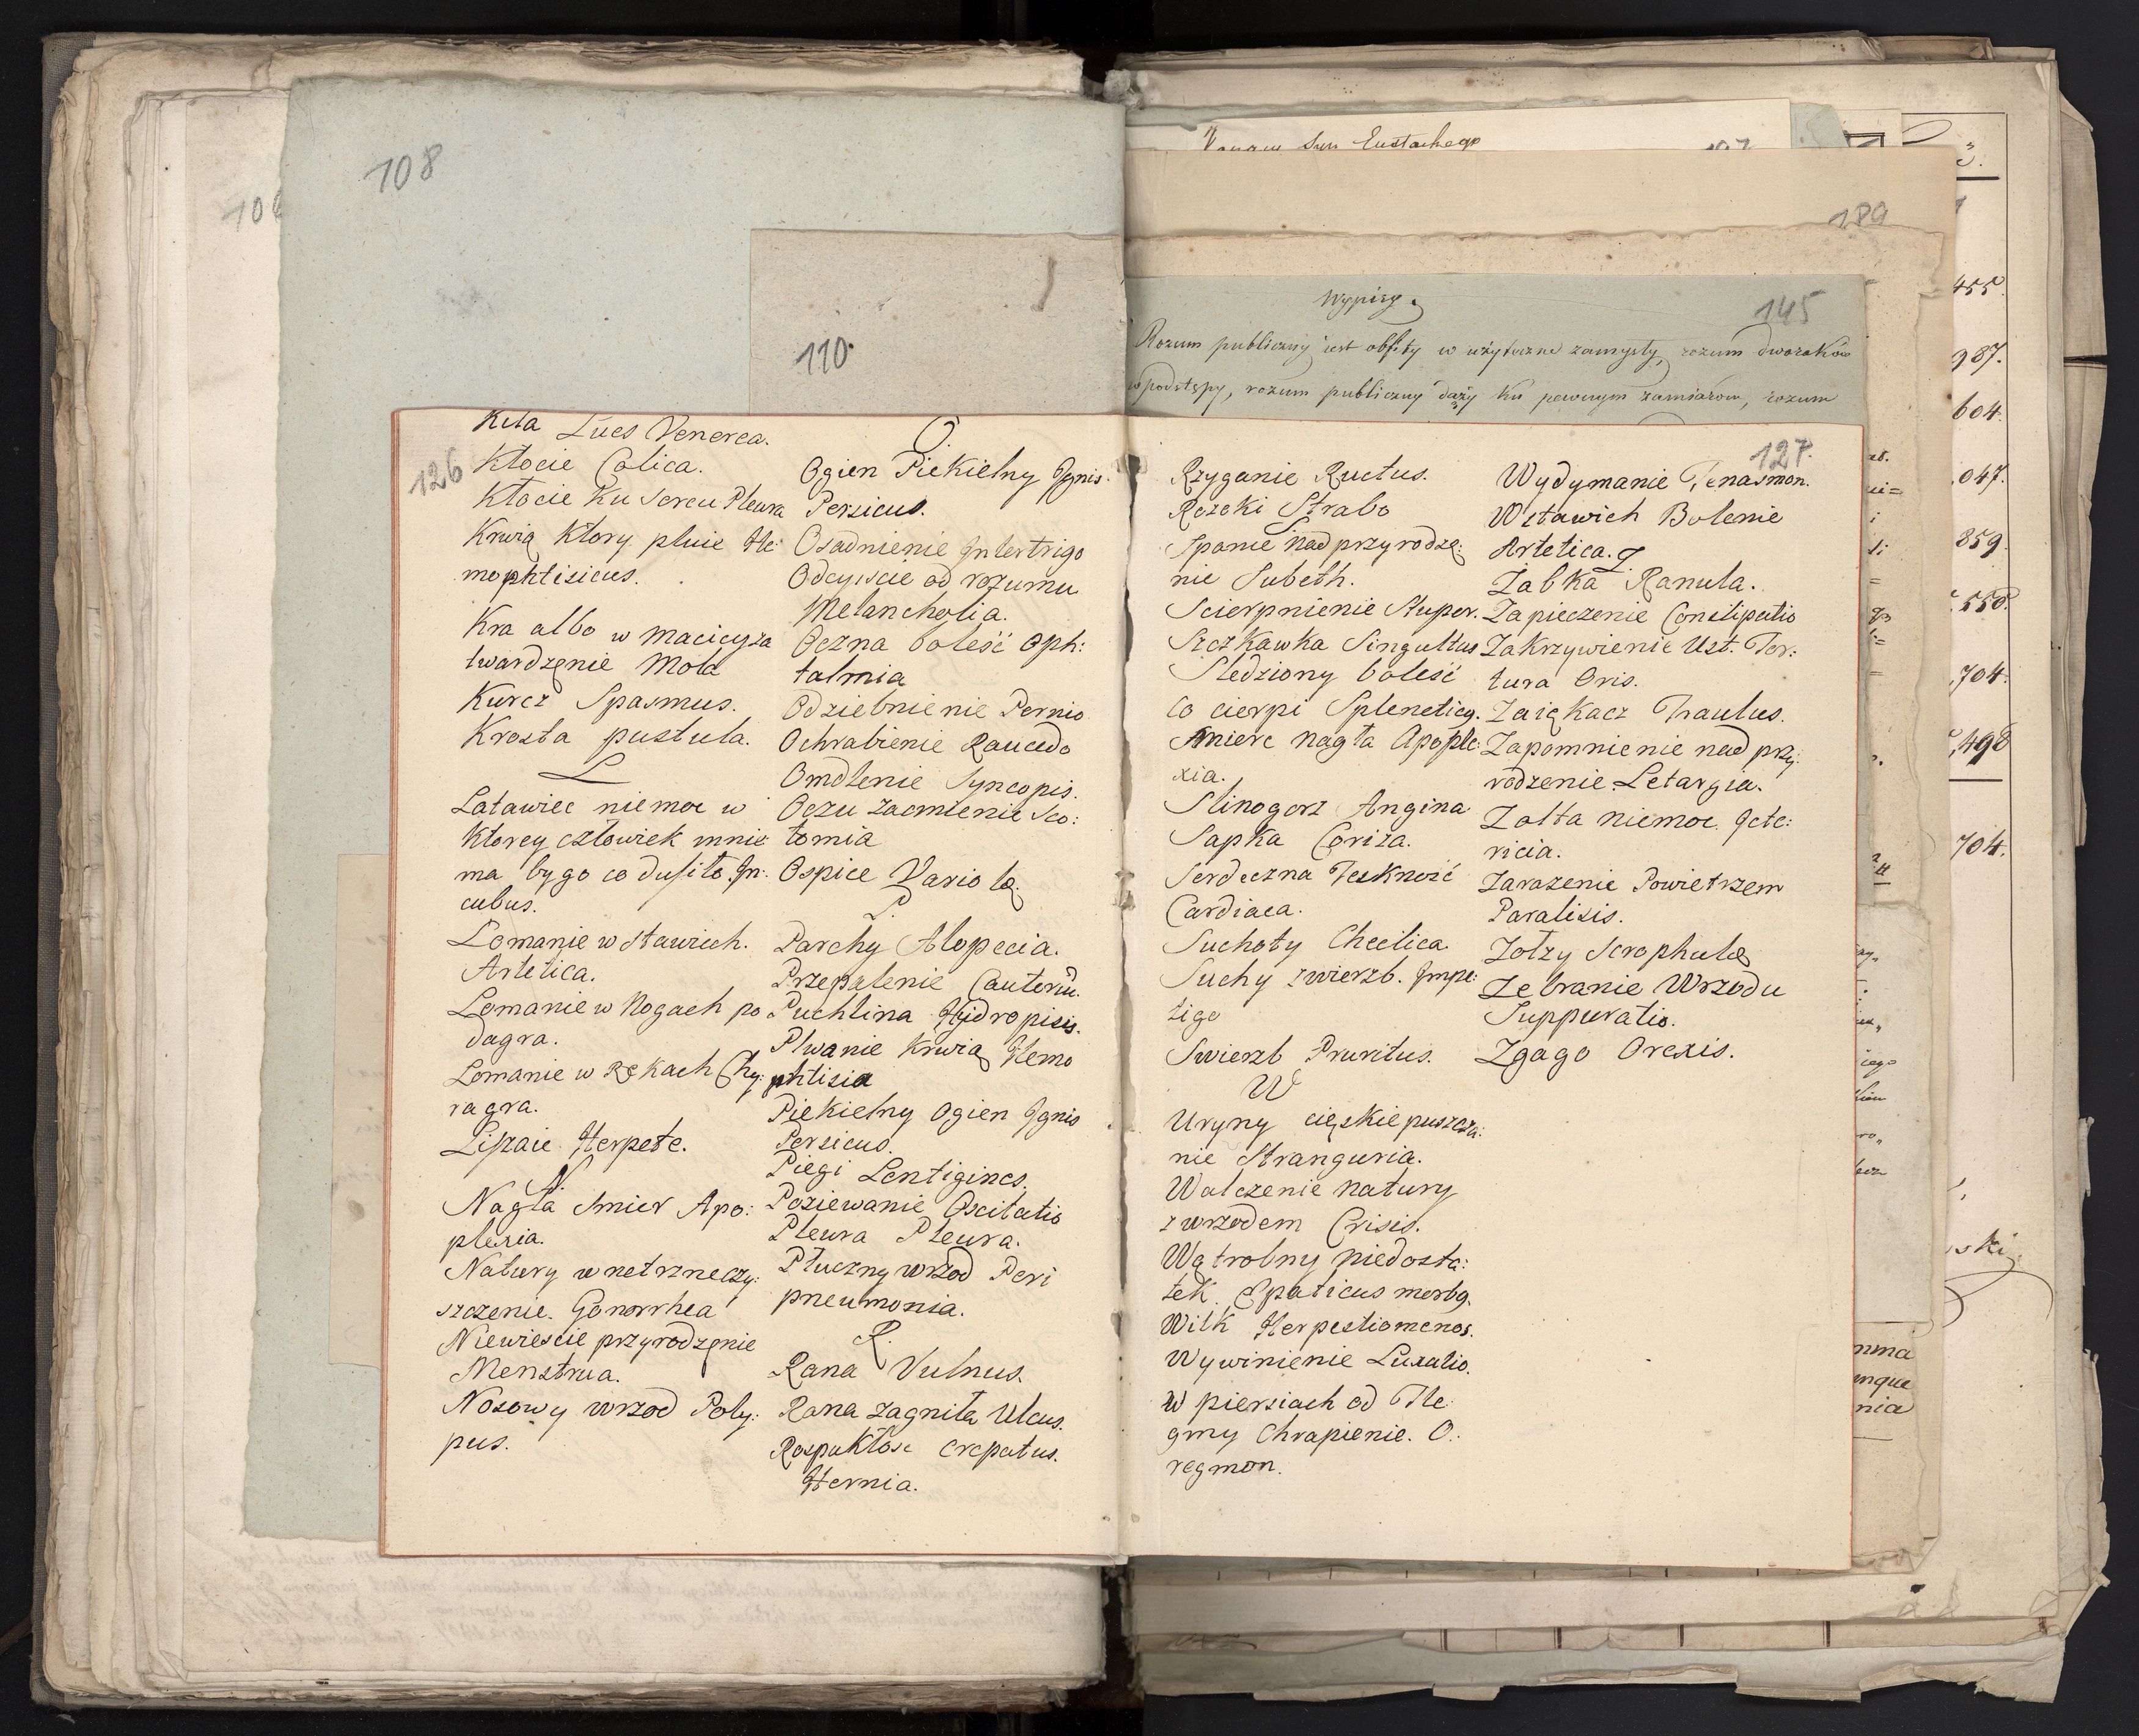 108
110
126
Kiła Lues Venerea.
Kłocie Colica.
Kłocie Ku Sercu Pleura
Krwią Ktory pluie He:
mophtisicus.
Kra albo w macicy za
twardzenie Mola
Kurcz Spasmus.
Krosta pustula.
L
Latawiec niemoc w
Ktorey człowiek mnie
ma by go co dusiło. In:
cubus.
Lomanie w stawiech.
Artetica.
Lomanie w Nogach po
dagra.
Lomanie w Rękach Chy:
ragra.
Liszaie Herpete.
N.
Nagła smier Apo:
plexia.
Natury wnetrzne czy:
szczenie. Gonorrhea
Niewiescie przyrodzęnie
Menstrua.
Nosowy wrzod Poly:
pus.
O.
Ogien Piekielny Ignis:
Persicus.
Osadnienie Intertrigo
Odeyscie od rozumu
Melancholia.
Oczna boleść Oph:
talmia
Odziebnienie Pernio
Ochrabienie Raucedo
Omdlenie Syncopis.
Oczu zacmienie Sco:
tomia
Ospice Variolę.
P.
Parchy Alopecia.
Przepalenie Cauteriu.
Puchlina Hydropisis.
Plwanie Krwią Hemo
phtisia
Piekielny Ogien Ignis
Persicus.
Piegi Lentigines.
Poziewanie Oscitatio
Pleura Pleura.
Płuczny wrzod Peri
pneumonia.
R.
Rana Vulnus.
Rana zagniła Ulcus.
Rospukłosc crepatus.
Hernia.
189
Wypisy
145
Rozum publiczny jest obfity w użyteczne zamysły, rozum dworaków
w podstępy, rozum publiczny dąży ku pewnym zamiarom, rozum
127.
Rzyganie Ructus.
Rozoki Strabo
Spanie Nad przyrodzę:
nie Subeth.
Scierpnienie Stupor.
Szczkawka Singultus
Sledziony boleść
co cierpi Spleneticq.
Smierc nagła Apople:
xia.
Slinogorz Angina
Sapka Coriza.
Serdeczna Teskność
Cardiaca.
Suchoty Chectica
Suchy swierzb. Impe:
tigo
Swierzb Pruritus.
W
Uryny cięskie puszcza:
nie Stranguria.
Walczenie natury
z wrzodem Crisis.
Wątrobny niedosta:
tek. Epaticus morbq.
Wilk Herpestiomenos.
Wywinienie Luxatio.
w piersiach od Fle
gmy Chrapienie. O:
regmon.
Wydymanie Tenasmon.
W stawiech Bolenie
Artetica.
Z
Żabka Ranula.
Zapieczenie Constipatio
Zakrzywienie Ust. Tor:
tura Oris.
Zaiękacz Traulus.
Zapomnienie nad przy:
rodzenie. Letargia.
Zolta niemoc. Icte:
ricia.
Zarazenie Powietrzem
Paralisis.
Zołzy Scrophulę
Zebranie Wrzodu
Suppuratio.
Zgago Orexis.
455.
987.
604.
047.
859.
550.
704.
498
704.